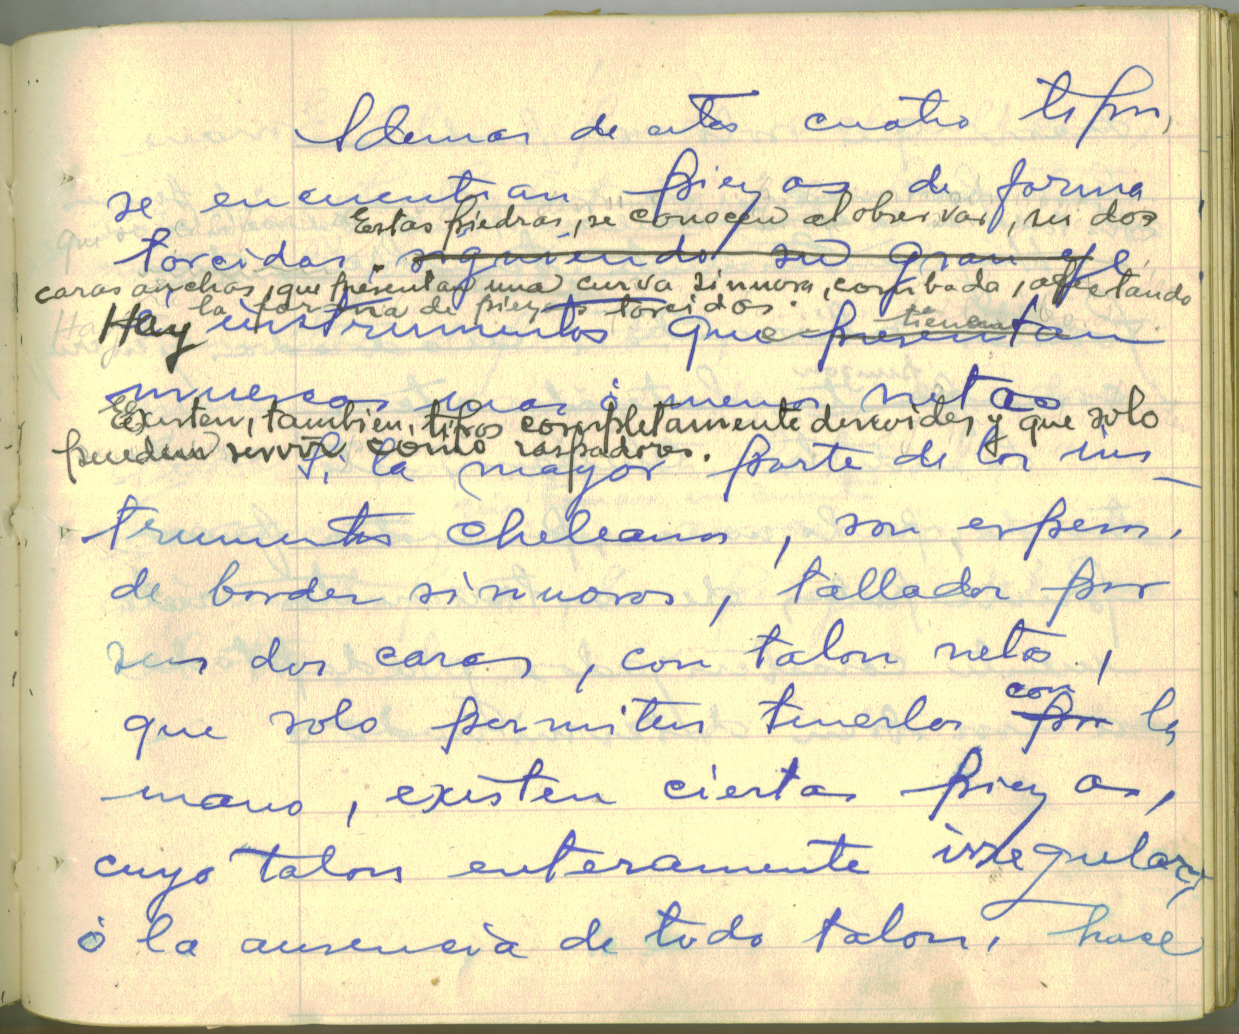 Ademas de estos cuatro tipos,
se encuentran piezas de forma
Estas piedras, se conocen al observar, sus dos
torcidas. siguiendo su gran eje.
caras anchas, que presentan una curva sinuosa, combada, afectando
la forma de piezas torcidos.
Hay instrumentos que presentan
tienen
muescas mas ó menos netas
Existen, tambien, tipos completamente desvoides y que solo
pueden servir como raspadores.
Si la mayor parte de los ins
trumentos cheleanos, son espesos,
de bordes sinuosos, tallados por
sus dos caras, con talon netos,
con
que solo permiten tenerlos por la
mano, existen ciertas piezas,
cuyo talon enteramente irregular,
ó la ausencia de todo talon, hace